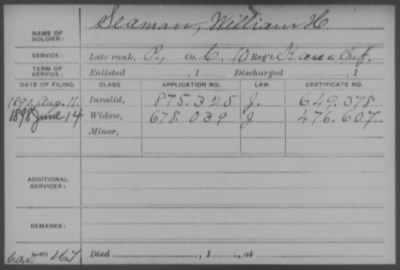 NAME OF SOLDIER: Seaman, William H
SERVICE: Late rank, P, Co. C, 10 Reg't Kans. Inf.
TERM OF SERVICE: Enlisted , 1 Discharged , 1
DATE OF FILING. CLASS. APPLICATION NO. LAW. CERTIFICATE NO.
1890 Aug. 11. Invalid, 875.325 J. 649.378
1898 June 14 Widow, 678.039 J. 476.607
Minor,
ADDITIONAL SERVICES:
REMARKS:
Died , 1 , at